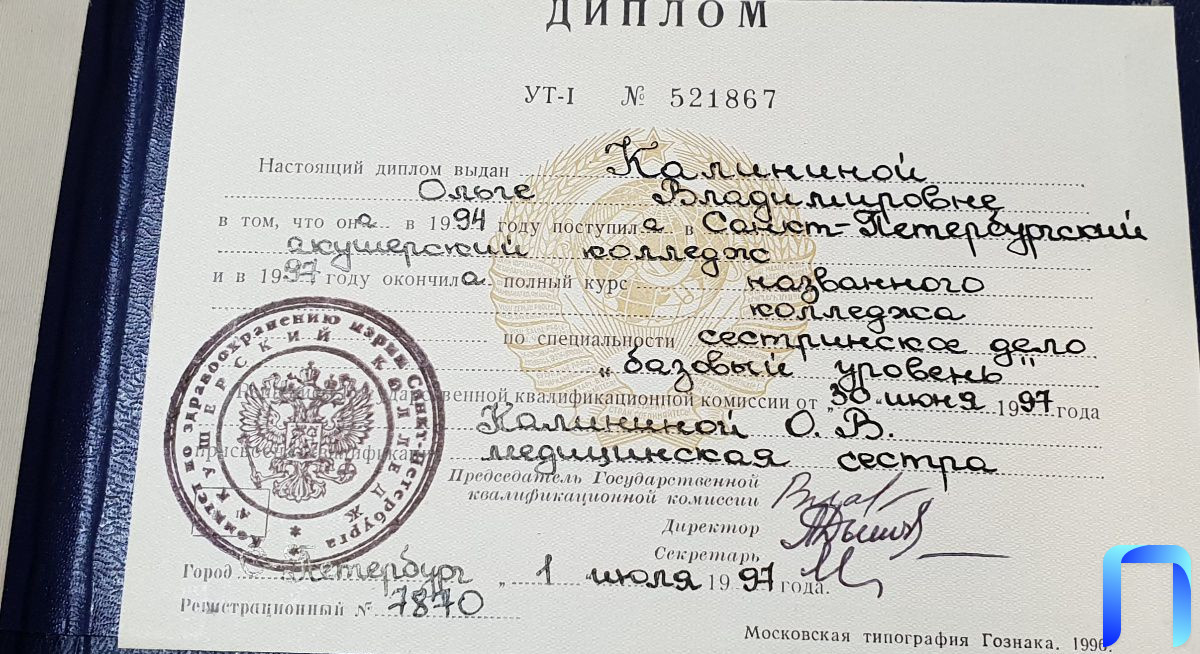 ДИПЛОМ
УТ-I № 521867
Настоящий диплом выдан Калининой
Ольге Владимировне
в том, что она в 1994 году поступила в Санкт-Петербургский
акушерский колледж
и в 1997 году окончила полный курс названного
колледжа
по специальности сестринское дело
„базовый уровень"
государственной квалификационной комиссии от „30" июня 1997 года
Калининой О. В.
присвоена квалификация
медицинская сестра
Председатель Государственной
квалификационной комиссии
Директор
Секретарь
Город Петербург „ 1 июля 1997 года.
Регистрационный № 7870
Московская типография Гознака. 1996.
Комитет по здравоохранению мэрии Санкт-Петербурга
АКУШЕРСКИЙ КОЛЛЕДЖ